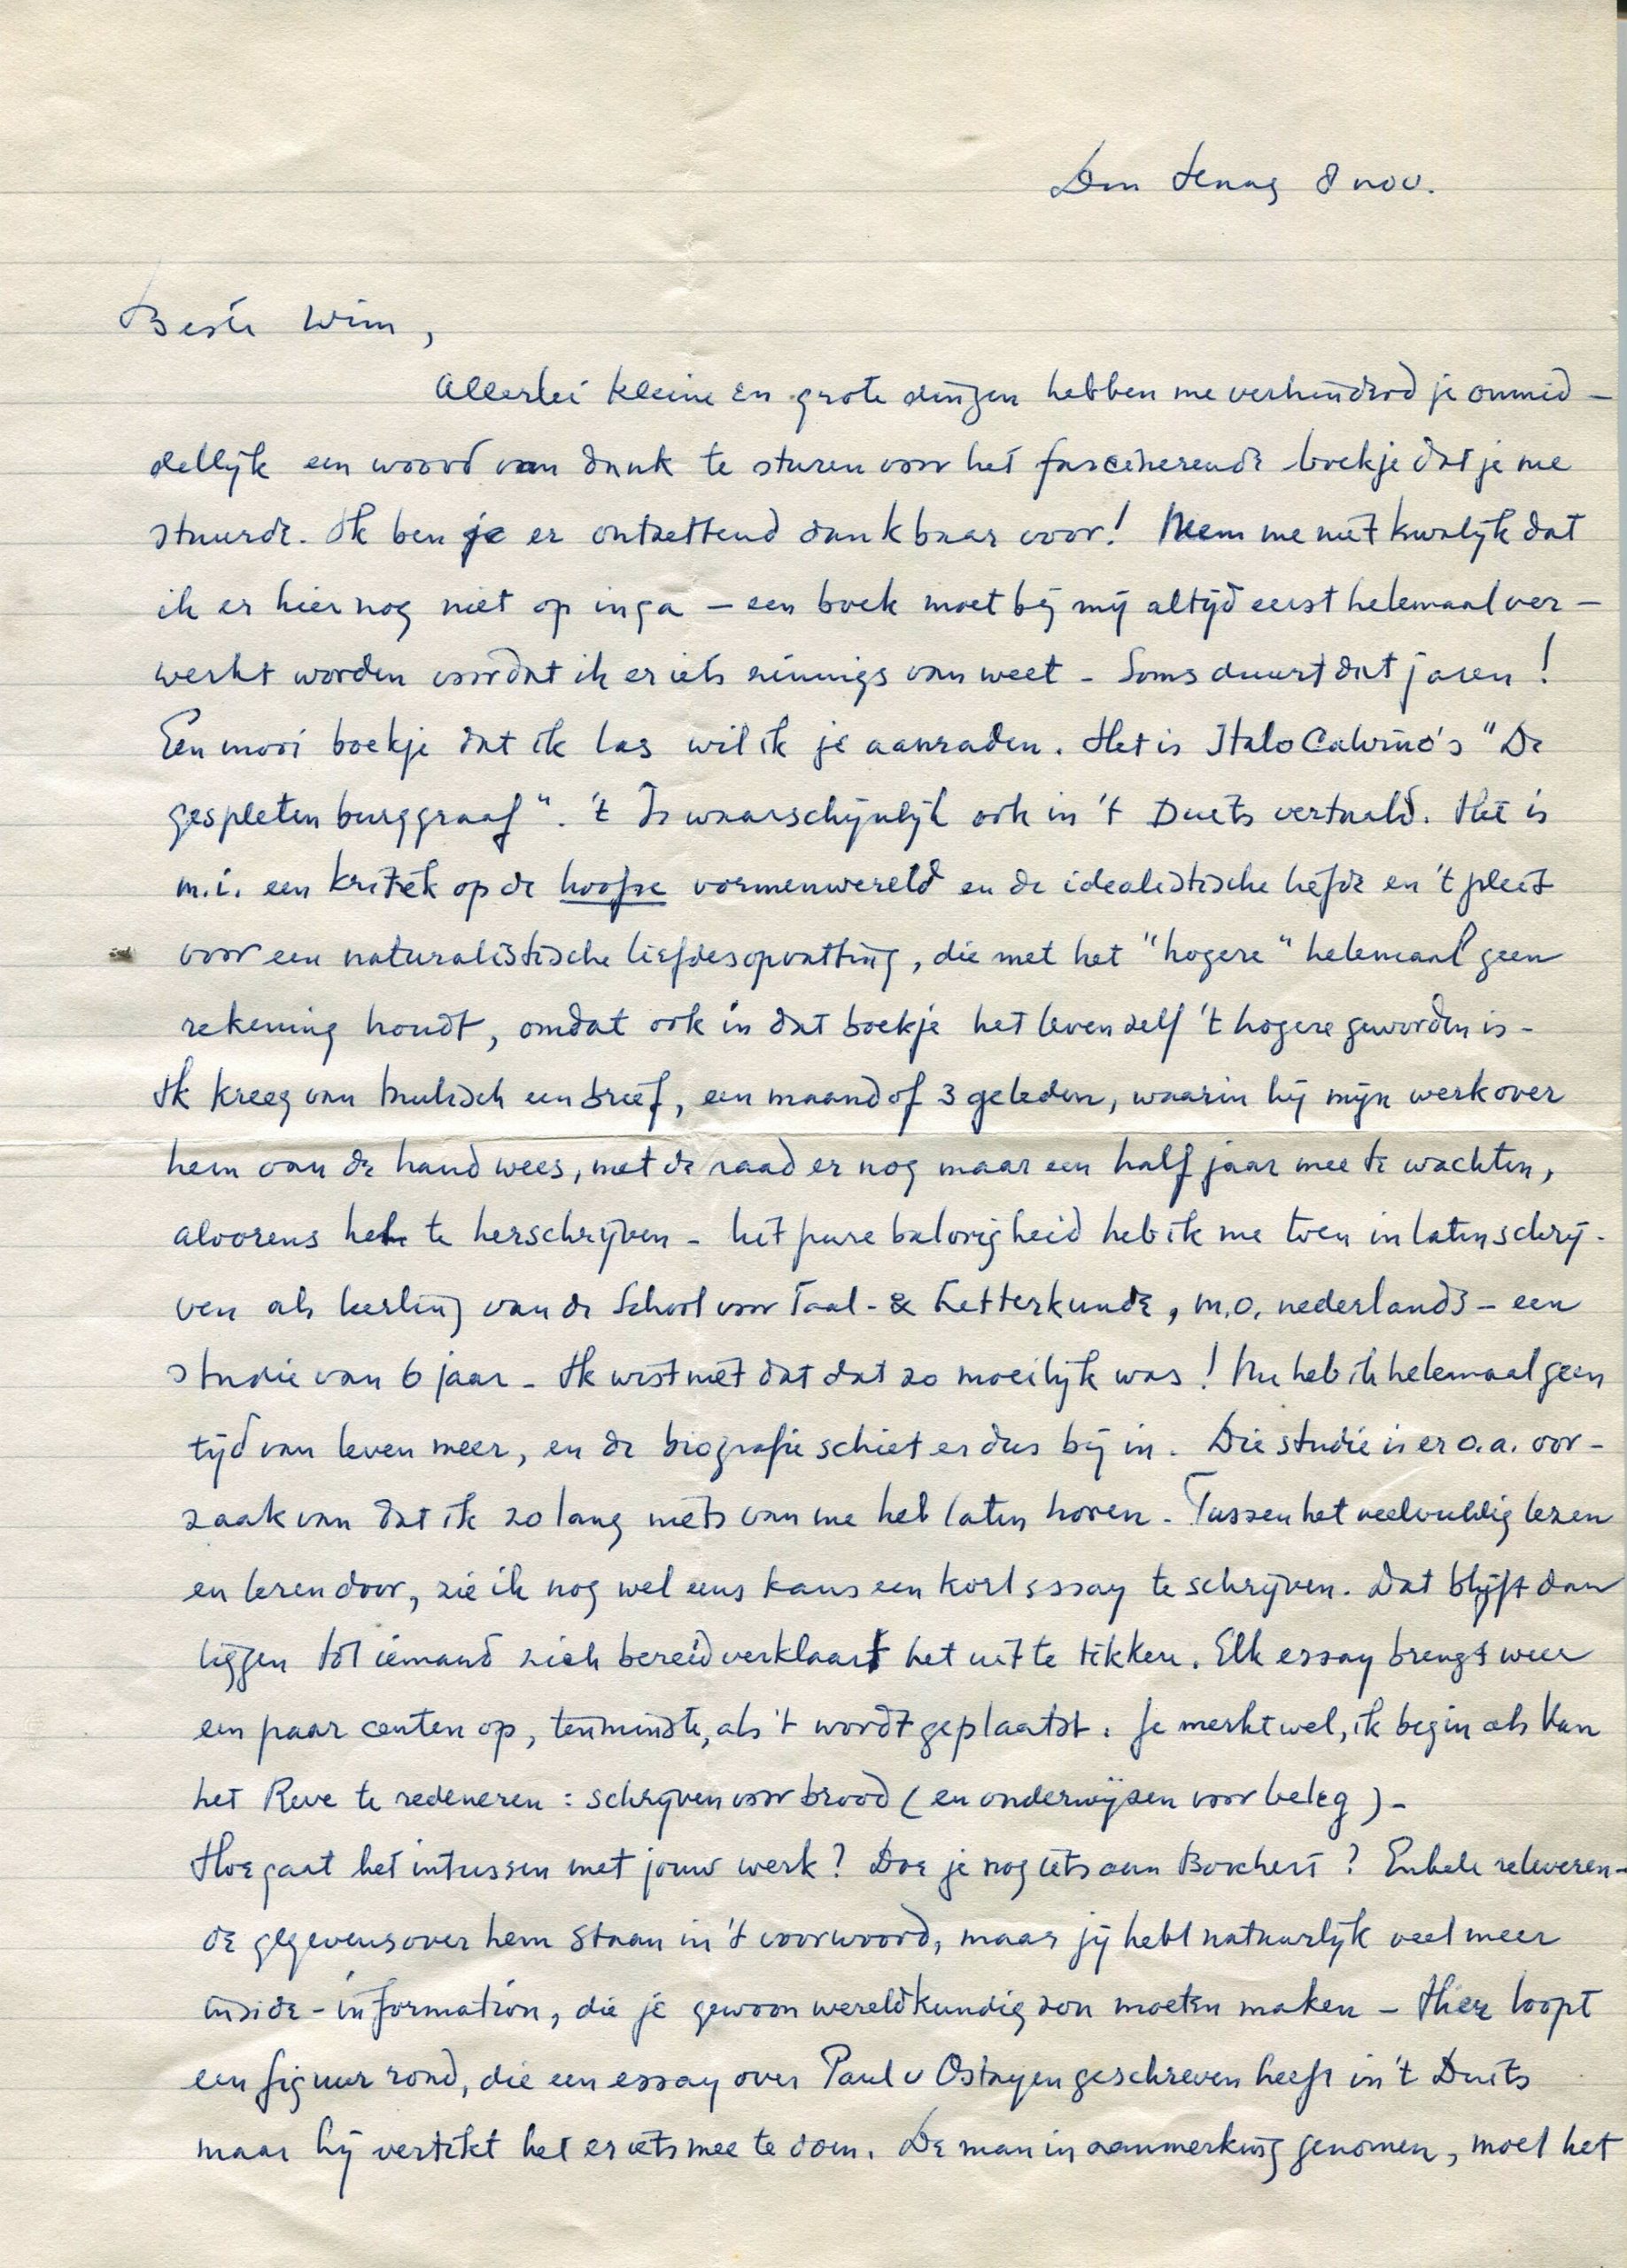 Den Haag 8 nov.
Beste Wim,
Allerlei kleine en grote dingen hebben me verhinderd je onmid-
dellijk een woord van dank te sturen voor het fascinerende boekje dat je me
stuurde. Ik ben je er ontzettend dankbaar voor! Neem me niet kwalijk dat
ik er hier nog niet op inga – een boek moet bij mij altijd eerst helemaal ver-
werkt worden voordat ik er iets zinnigs van weet – Soms duurt dat jaren!
Een mooi boekje dat ik las wil ik je aanraden. Het is Italo Calvino's "De
gespleten burggraaf". 't Is waarschijnlijk ook in 't Duits vertaald. Het is
m.i. een kritiek op de hoofse vormenwereld en de idealistische liefde en 't pleit
voor een naturalistische liefdesopvatting, die met het "hogere" helemaal geen
rekening houdt, omdat ook in dat boekje het leven zelf 't hogere geworden is –
Ik kreeg van Mulisch een brief, een maand of 3 geleden, waarin hij mijn werk over
hem van de hand wees, met de raad er nog maar een half jaar mee te wachten,
alvorens het te herschrijven – Uit pure balorigheid heb ik me toen in laten schrij-
ven als leerling van de School voor Taal- & Letterkunde, m.o. nederlands – een
studie van 6 jaar – Ik wist niet dat dat zo moeilijk was! Nu heb ik helemaal geen
tijd van leven meer, en de biografie schiet er dus bij in. Die studie is er o.a. oor-
zaak van dat ik zo lang niets van me heb laten horen – Tussen het veelvuldig lezen
en leren door, zie ik nog wel eens kans een kort essay te schrijven. Dat blijft dan
liggen tot iemand zich bereid verklaart het uit te tikken. Elk essay brengt weer
een paar centen op, tenminste, als 't wordt geplaatst. Je merkt wel, ik begin als Van
het Reve te redeneren: schrijven voor brood (en onderwijzen voor beleg) –
Hoe gaat het intussen met jouw werk? Doe je nog iets aan Borchert? Enkele releveren-
de gegevens over hem staan in 't voorwoord, maar jij hebt natuurlijk veel meer
inside-information, die je gewoon wereldkundig zou moeten maken – Hier loopt
een figuur rond, die een essay over Paul v Ostayen geschreven heeft in 't Duits
maar hij vertikt het er iets mee te doen. De man in aanmerking genomen, moet het